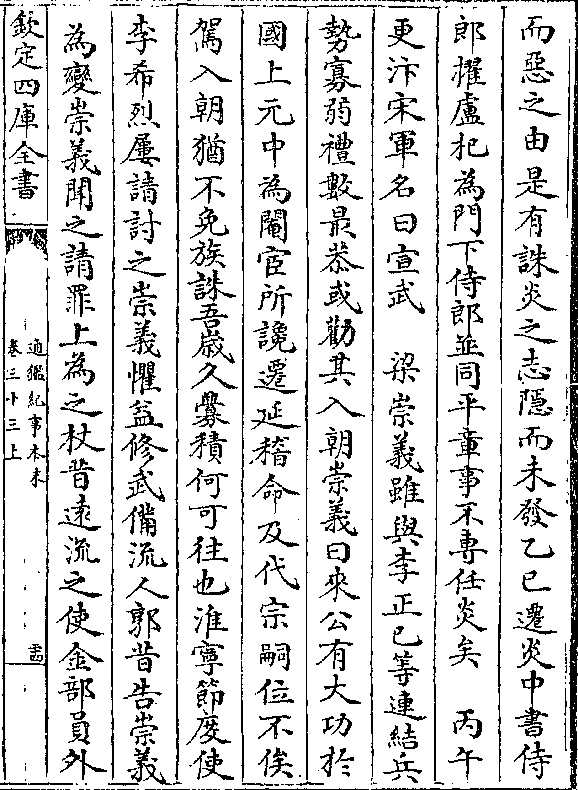 而惡之由是有誅炎之志隱而未發乙巳遷炎中書侍
郎擢盧杞為門下侍郎並同平章事不專任炎矣　丙午
更汴宋軍名曰宣武　梁崇義雖與李正已等連結兵
勢寡弱禮數最恭或勸其入朝崇義曰來公有大功於
國上元中為閹宦所讒遷延稽命及代宗嗣位不俟
駕入朝猶不免族誅吾歲久釁積何可往也淮寧節度使
李希烈屢請討之崇義懼益修武備流人郭昔告崇義
為變崇義聞之請罪上為之杖昔遠流之使金部員外
欽定四庫全書
通鑑紀事本末
卷三十三上